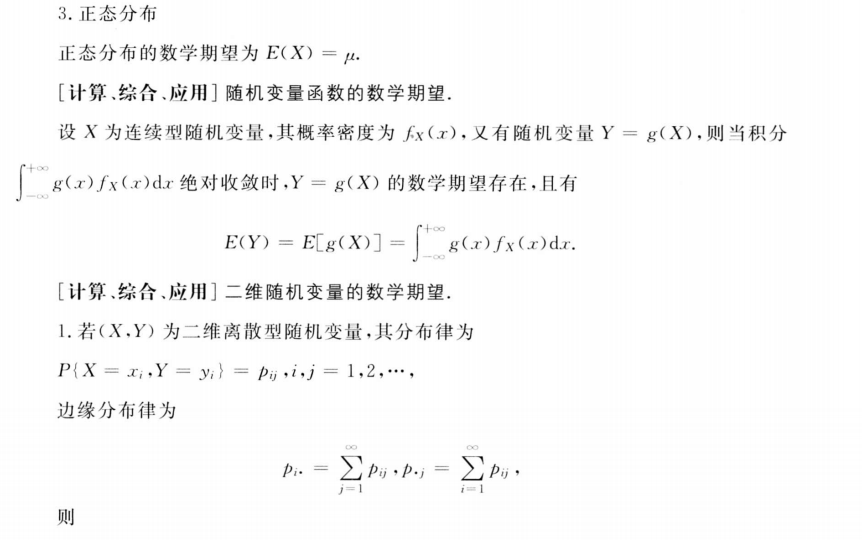 3. 正态分布
正态分布的数学期望为 E(X) = μ.
[计算、综合、应用] 随机变量函数的数学期望.
设 X 为连续型随机变量,其概率密度为 fX(x),又有随机变量 Y = g(X),则当积分
∫_{-∞}^{+∞} g(x)fX(x)dx 绝对收敛时,Y = g(X) 的数学期望存在,且有
E(Y) = E[g(X)] = ∫_{-∞}^{+∞} g(x)fX(x)dx.
[计算、综合、应用] 二维随机变量的数学期望.
1. 若(X,Y) 为二维离散型随机变量,其分布律为
P{X = xi,Y = yi} = pij,i,j = 1,2,…,
边缘分布律为
pi· = ∑_{j=1}^{∞} pij,p·j = ∑_{i=1}^{∞} pij,
则